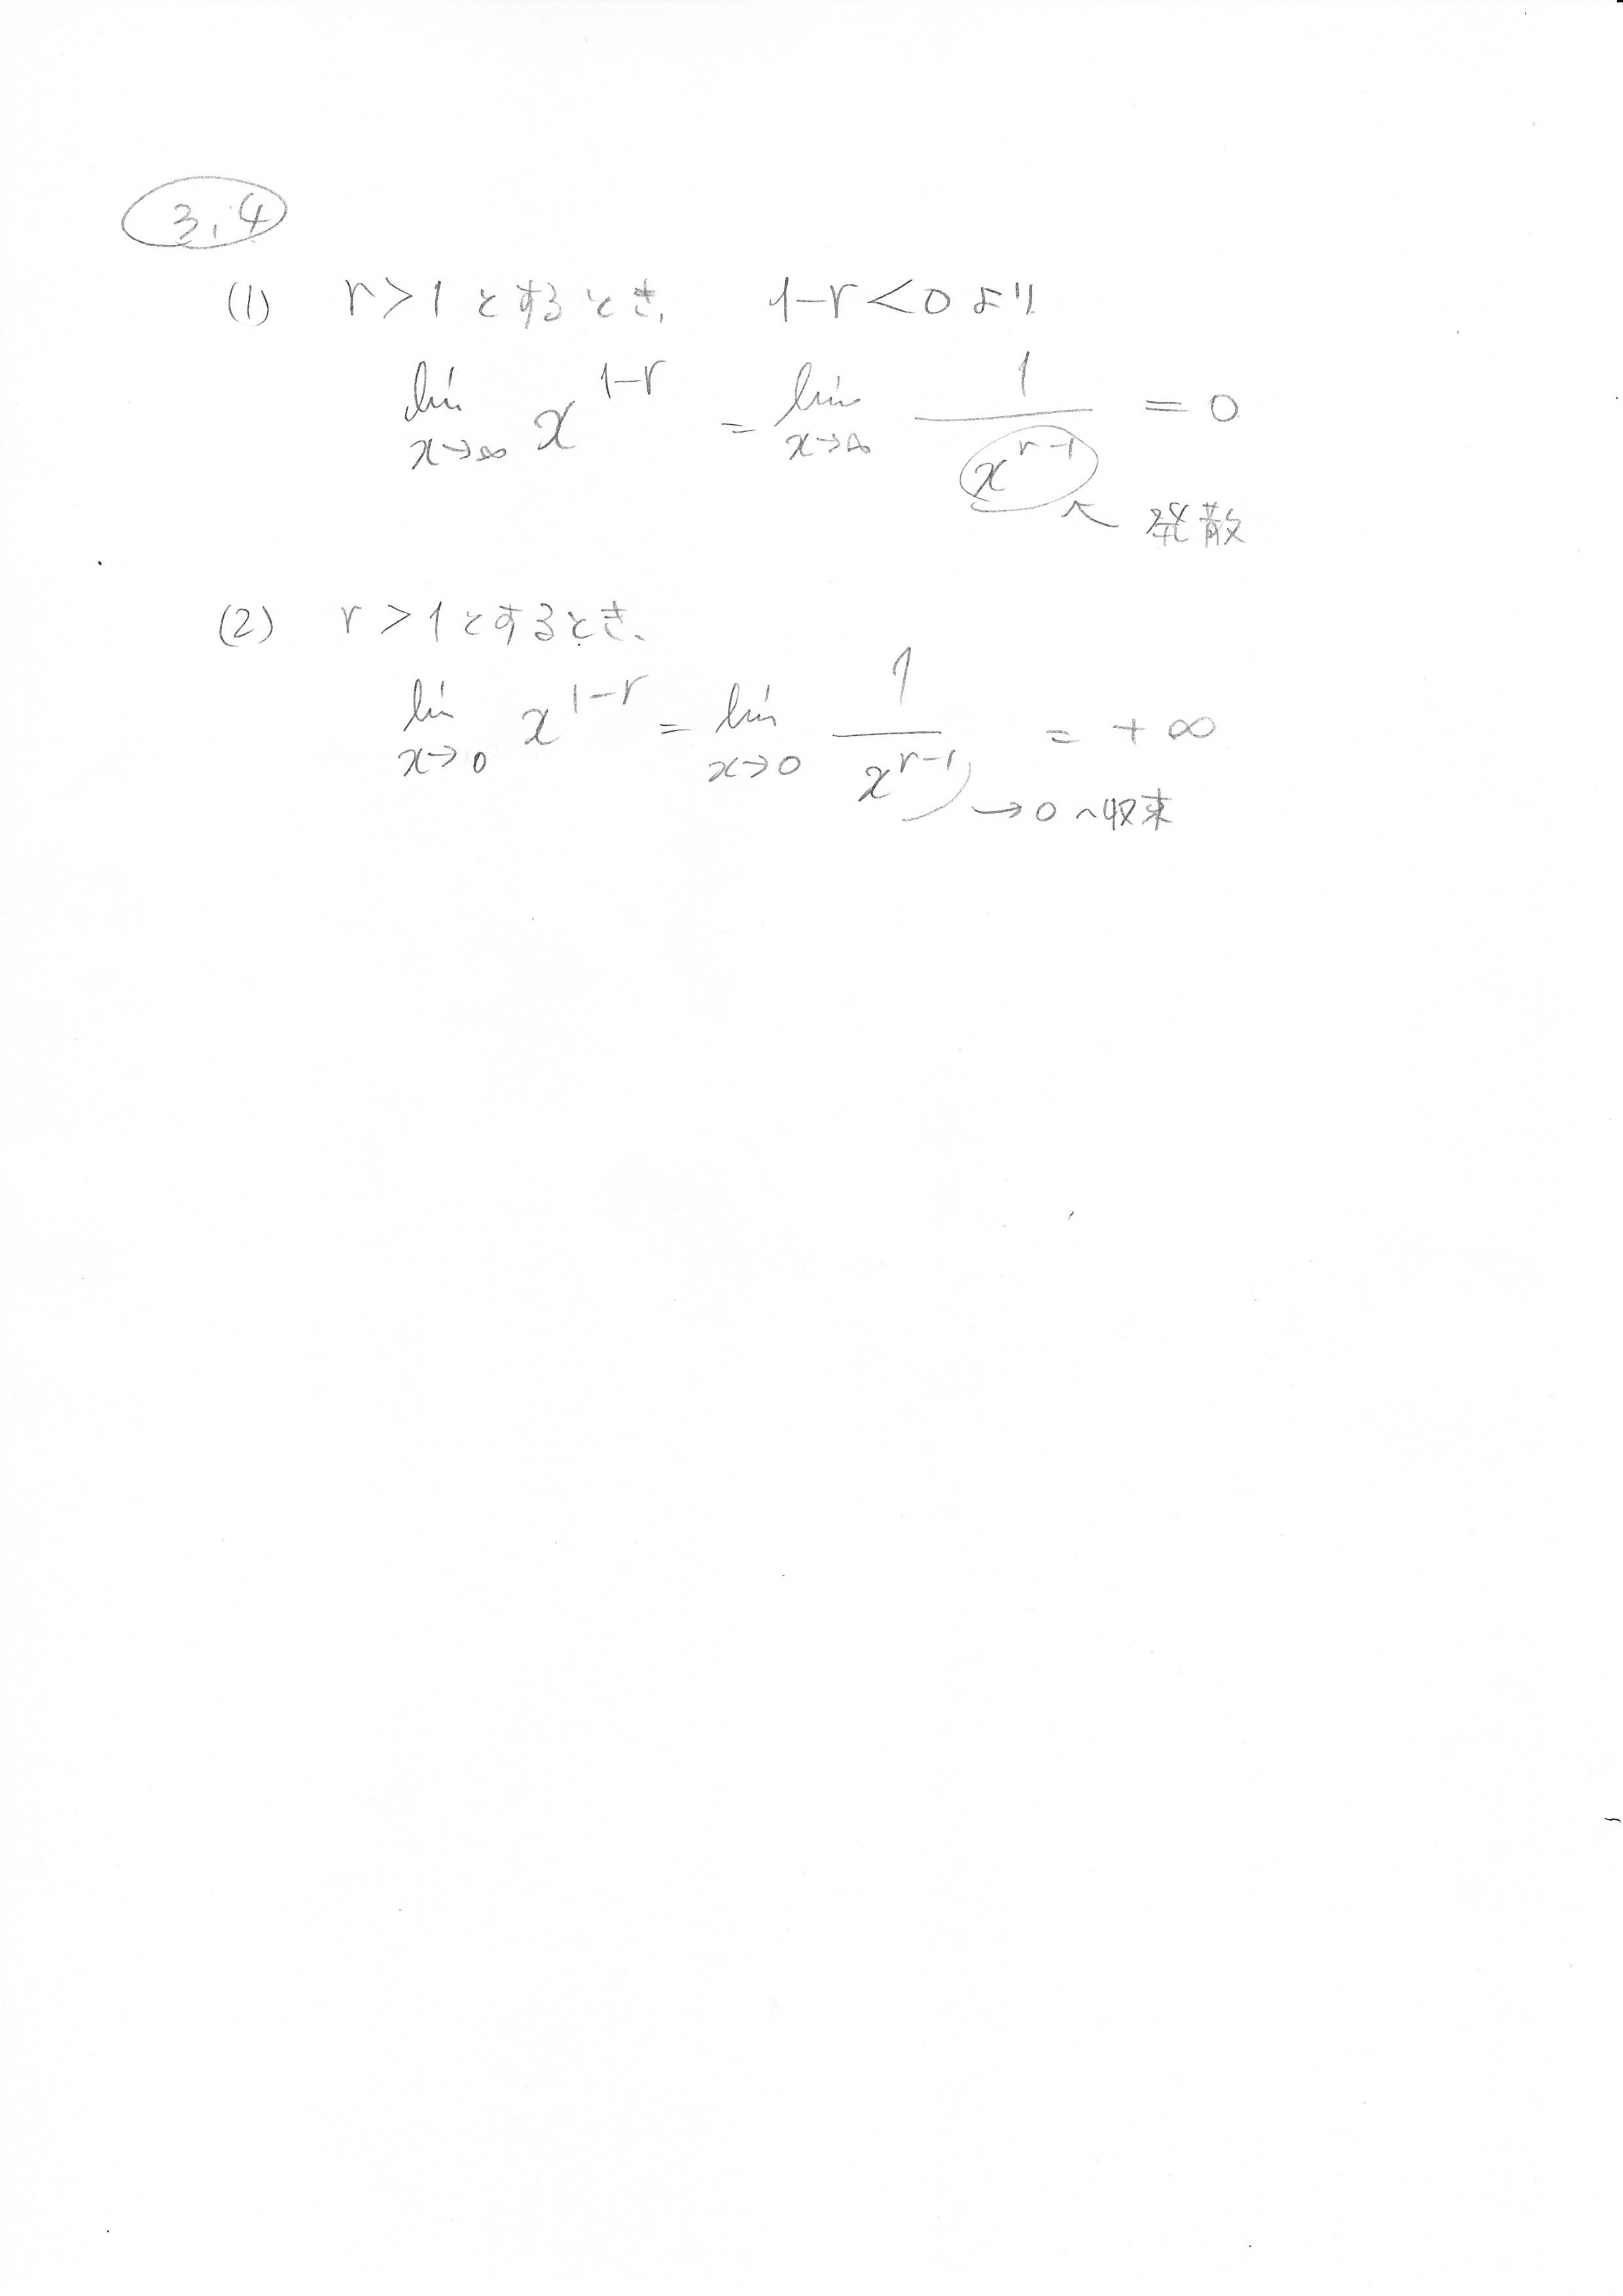 3.4
(1) r>1とするとき、 1-r<0より
lim x→∞ x^{1-r} = lim x→∞ 1/x^{r-1} = 0
↖ 発散
(2) r>1とするとき、
lim x→0 x^{1-r} = lim x→0 1/x^{r-1} = +∞
→0へ収束